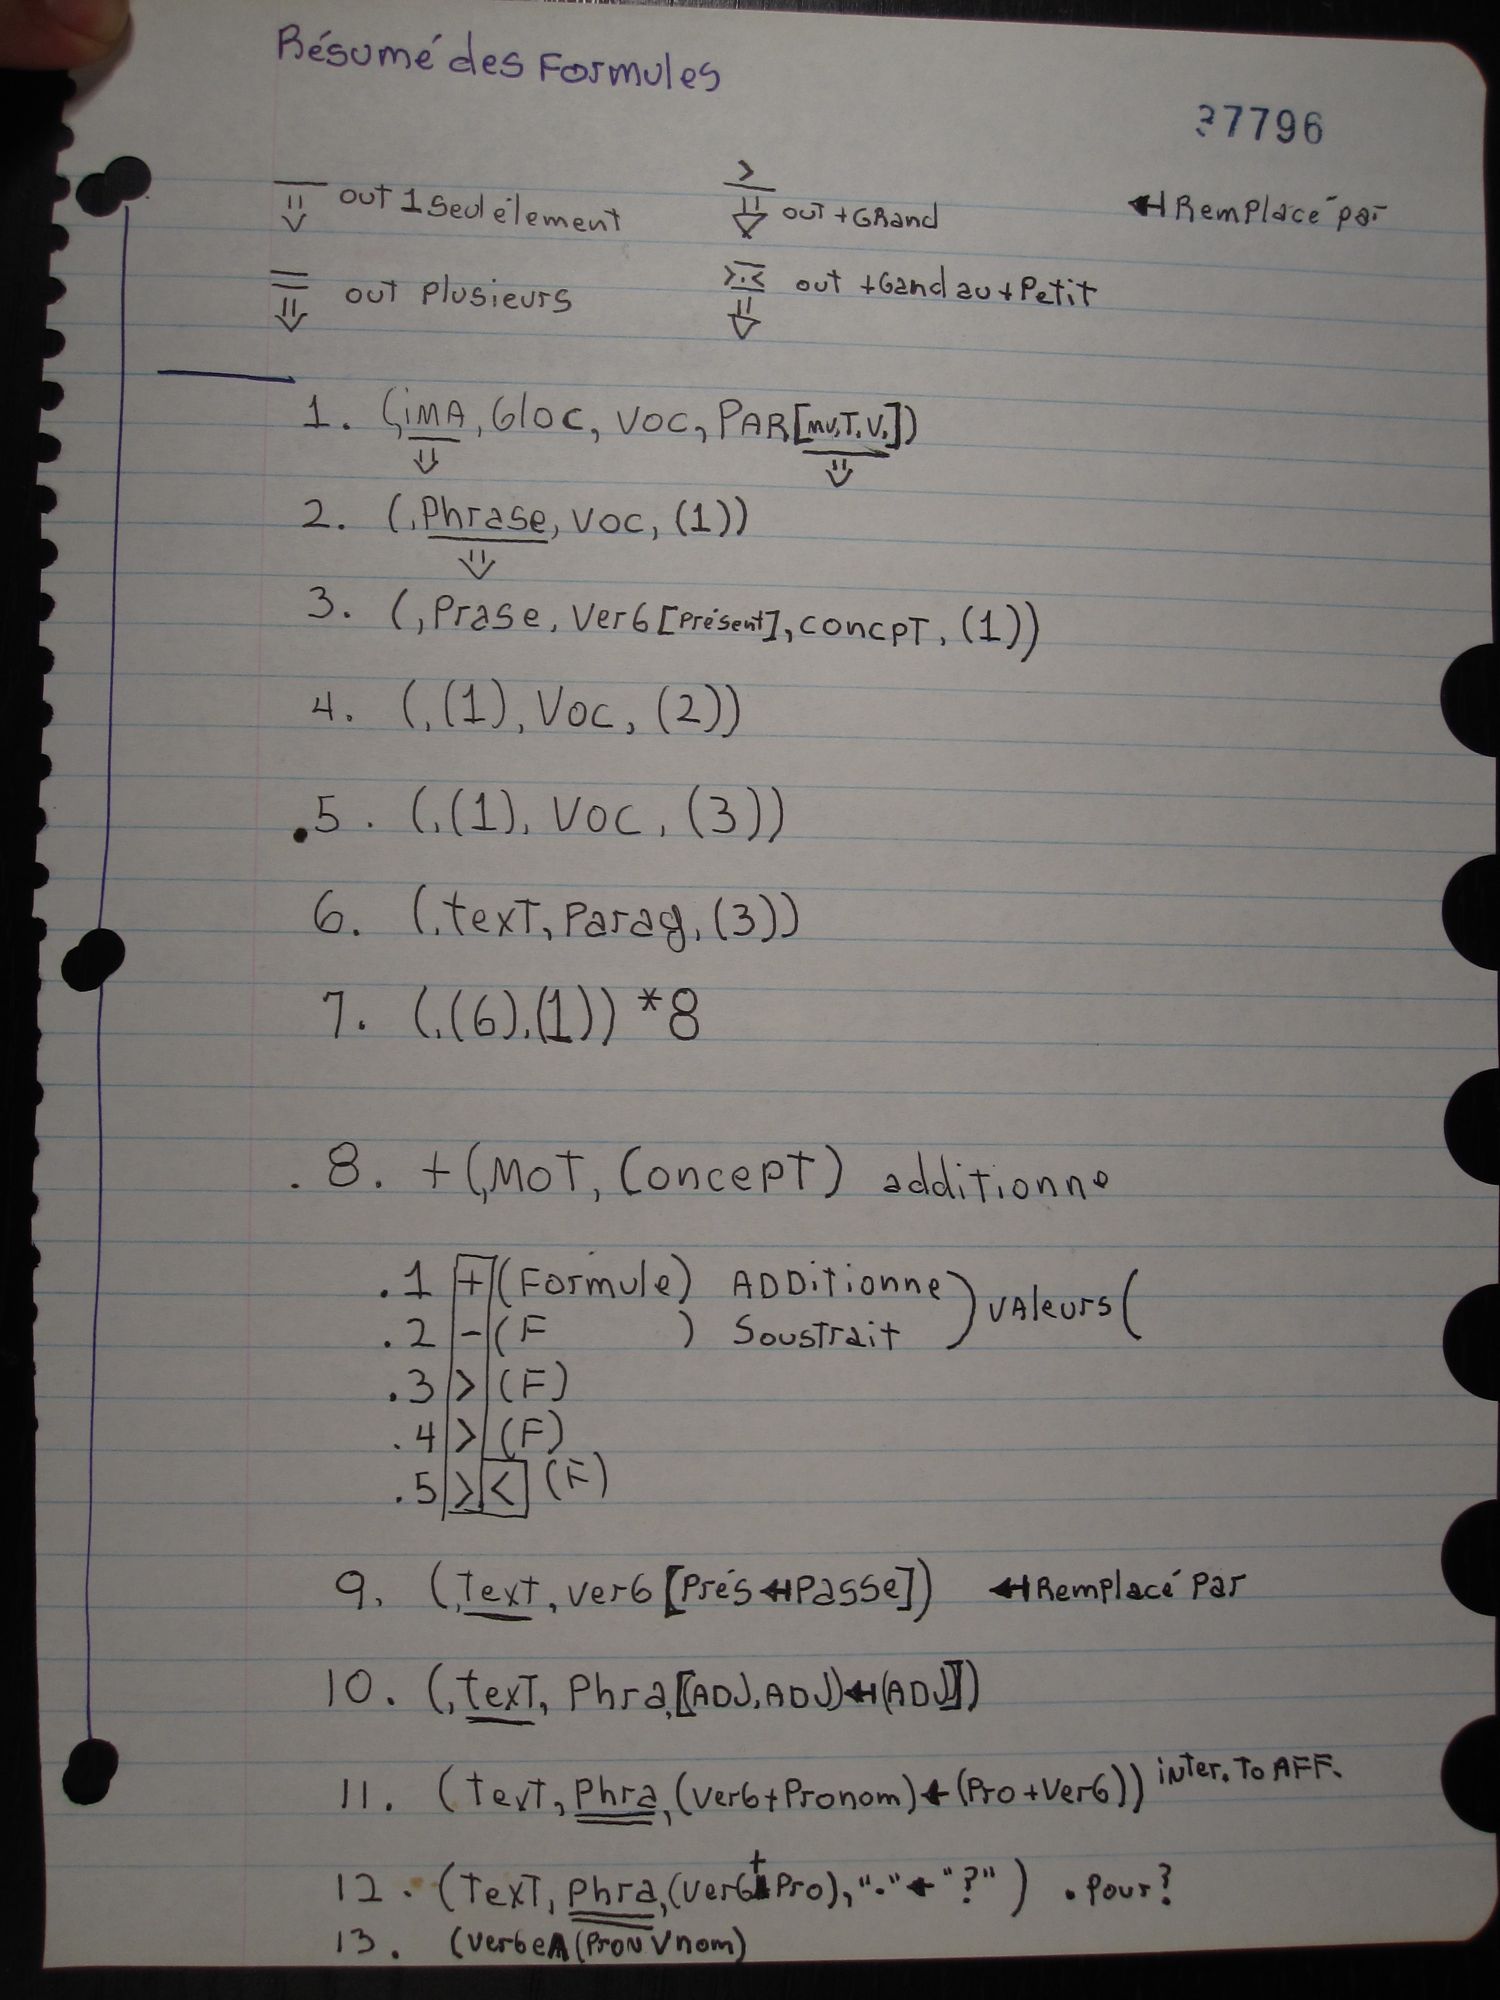 Résumé des Formules
37796
out 1 seul élément
> out + GRand
↤ Remplacé par
out plusieurs
>.< out + Gand au + Petit
1. (,imA, Gloc, voc, PAR[mv,T,V,])
2. (,Phrase, voc, (1))
3. (,Prase, Verb [Présent], concpT, (1))
4. (,(1), Voc, (2))
.5. (,(1), Voc, (3))
6. (,texT, Parag, (3))
7. (,(6),(1)) *8
.8. +(,MoT, ConcepT) additionne
.1 + (Formule) ADDitionne ) VAleurs (
.2 - (F ) Soustrait
.3 > (F)
.4 > (F)
.5 > < (F)
9. (,Text, verb [Prés ↤ Passe]) ↤ Remplacé Par
10. (,texT, Phra,[(ADJ,ADJ) ↤ (ADJ)])
11. (Text, Phra,(verb+Pronom) ← (Pro+Verb)) inter. To AFF.
12. (TexT, phra,(verb+Pro), "." ← "?") . Pour?
13. (verbe Λ (Pron V nom)